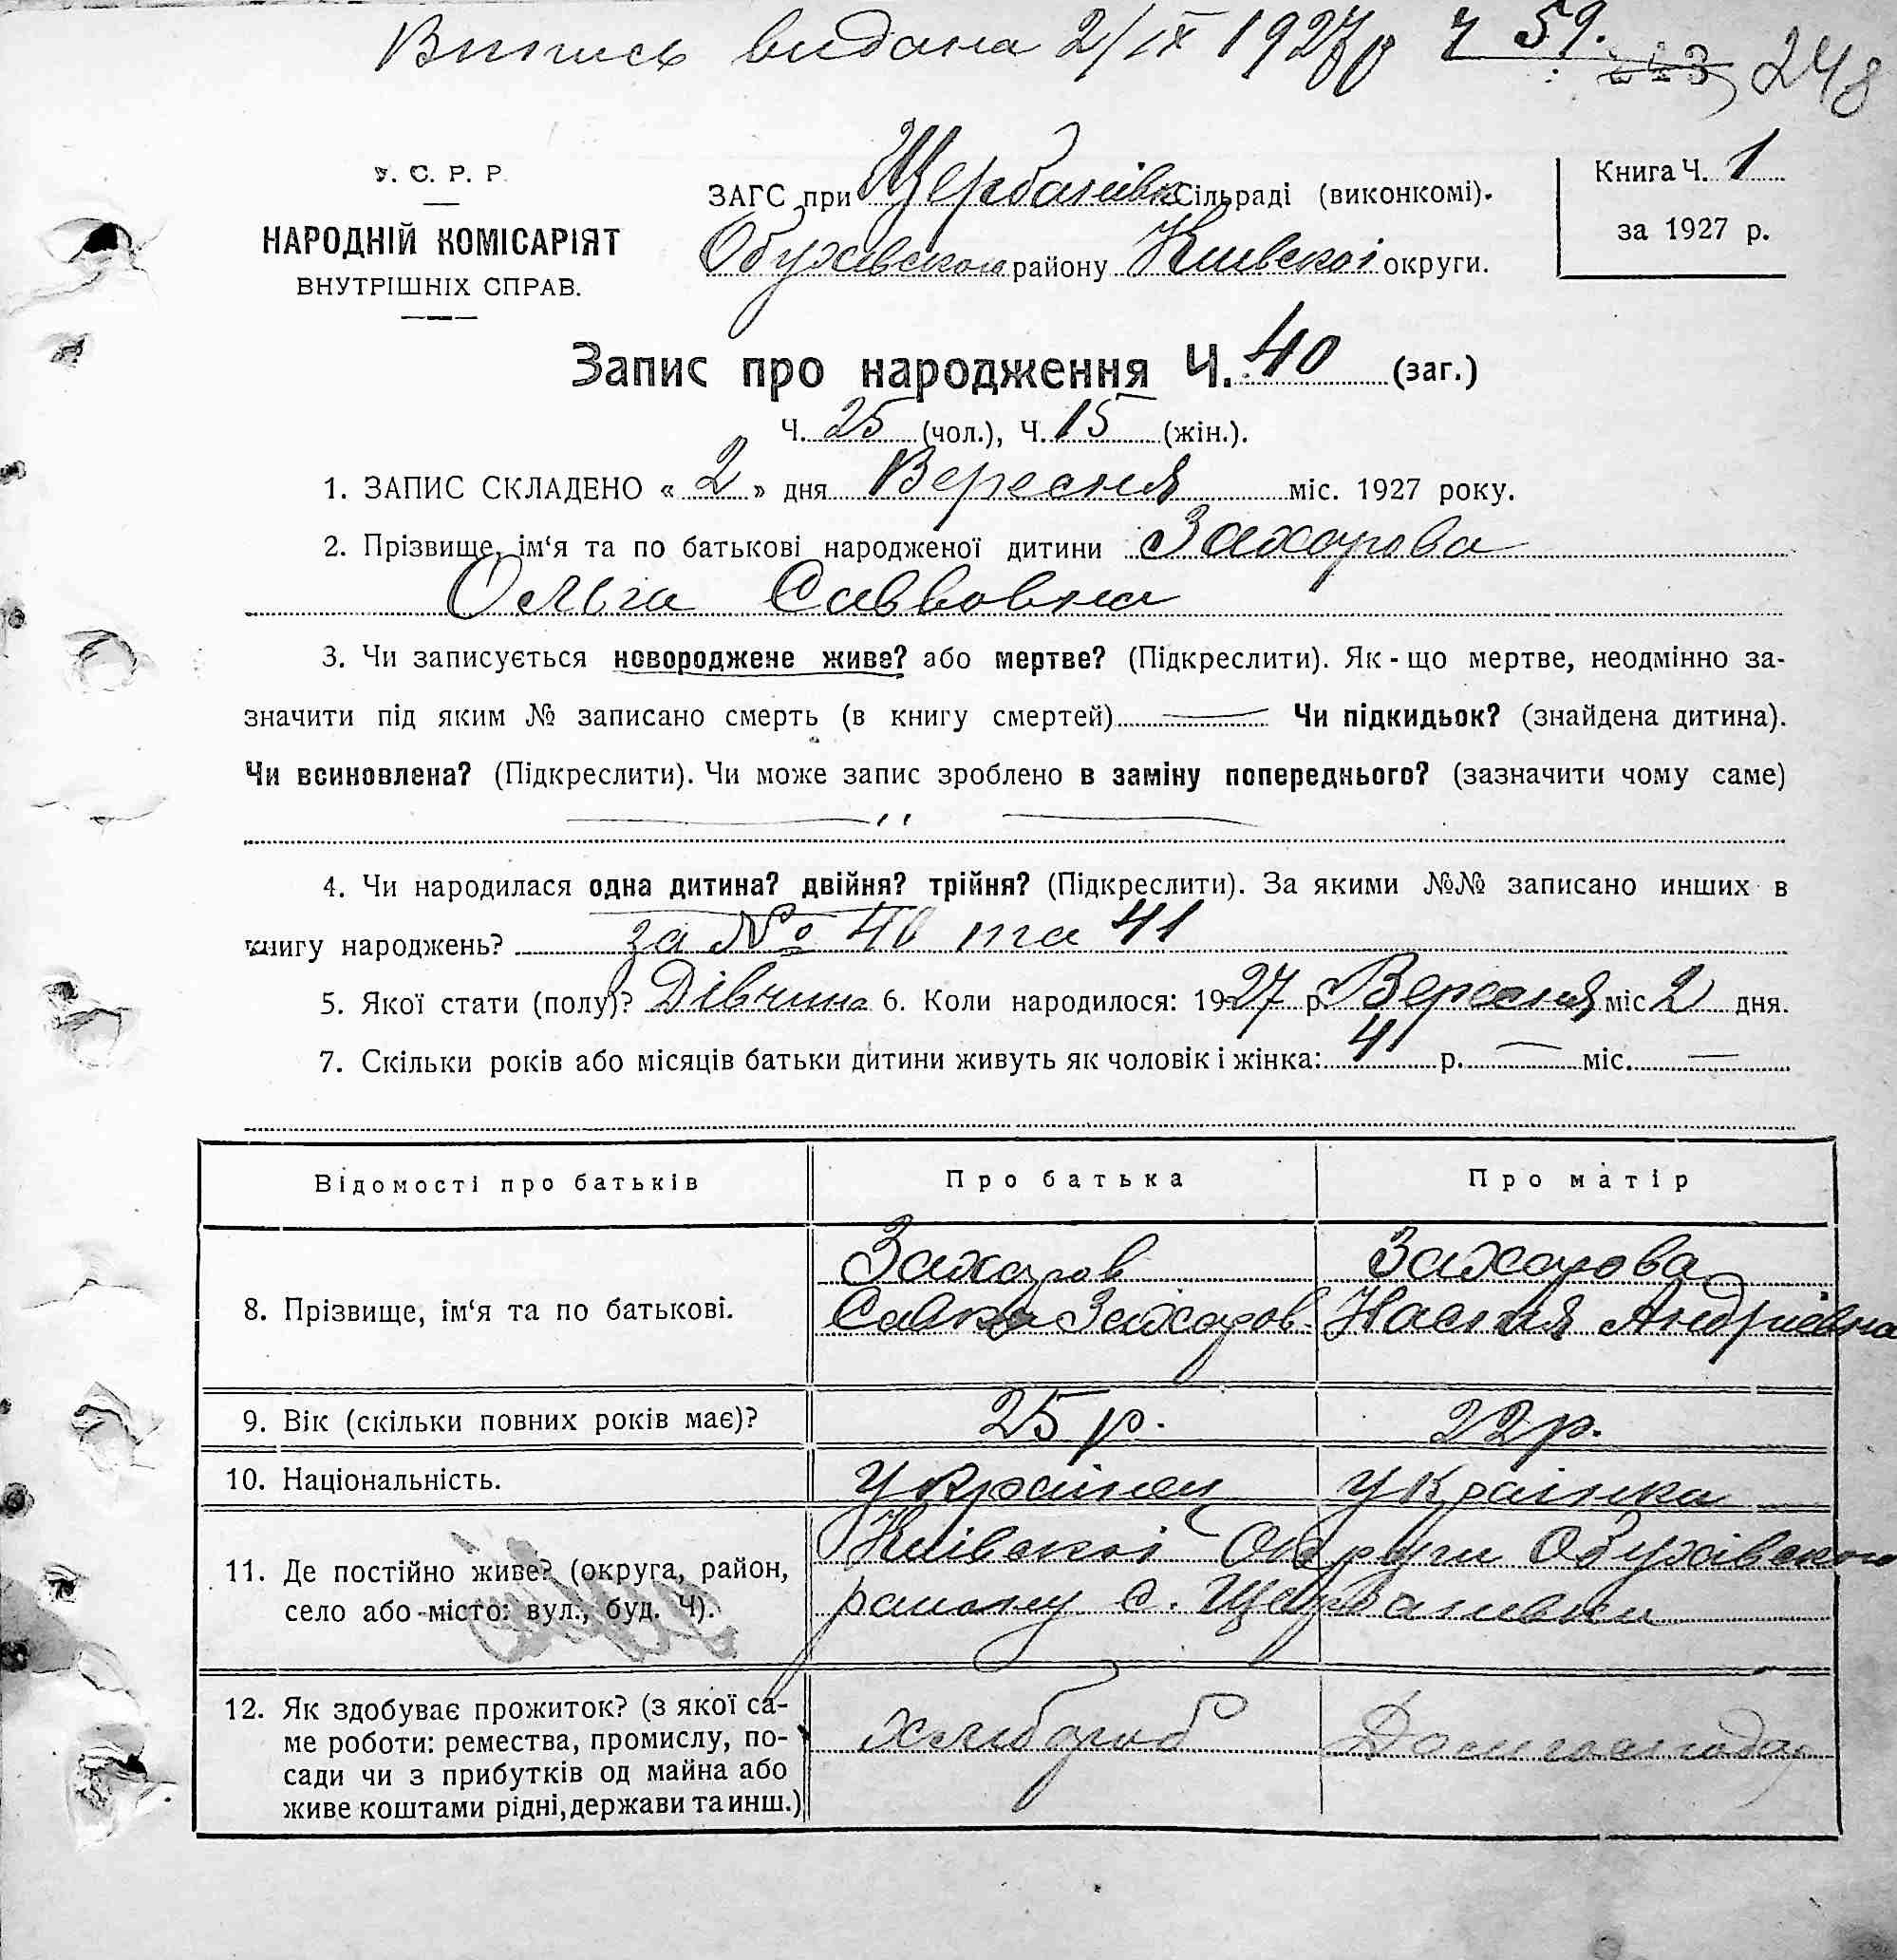 Випись видана 2/IX 1927 р Ч 59.
223 248
У. С. Р. Р.
НАРОДНІЙ КОМІСАРІЯТ
ВНУТРІШНІХ СПРАВ.
ЗАГС при Щербанівк Сільраді (виконкомі).
Обухівського району Київскоі округи.
Книга Ч. 1
за 1927 р.
Запис про народження Ч. 40 (заг.)
Ч. 25 (чол.), Ч. 15 (жін.).
1. ЗАПИС СКЛАДЕНО « 2 » дня Вересня міс. 1927 року.
2. Прізвище, ім‘я та по батькові народженої дитини Захарова
Ольга Саввовна
3. Чи записується новороджене живе? або мертве? (Підкреслити). Як - що мертве, неодмінно за-
значити під яким № записано смерть (в книгу смертей) — Чи підкидьок? (знайдена дитина).
Чи всиновлена? (Підкреслити). Чи може запис зроблено в заміну попереднього? (зазначити чому саме)
— ,, —
4. Чи народилася одна дитина? двійня? трійня? (Підкреслити). За якими №№ записано инших в
книгу народжень? за № 40 та 41
5. Якої стати (полу)? Дівчина 6. Коли народилося: 1927 р. Вересня міс. 2 дня.
7. Скільки років або місяців батьки дитини живуть як чоловік і жінка: 4 р. — міс. —
Відомості про батьків Про батька Про матір
8. Прізвище, ім‘я та по батькові.
Захаров Захарова
Савка Захаров. Настя Андриівна
9. Вік (скільки повних років має)? 25 р. 22 р.
10. Національність. Украінец Украінка
11. Де постійно живе? (округа, район,
село або місто: вул., буд. Ч).
Киівскоі Округи Обухівського
району с. Щербанивки
12. Як здобуває прожиток? (з якої са-
ме роботи: ремества, промислу, по-
сади чи з прибутків од майна або
живе коштами рідні, держави та инш.)
хлібороб Домгосподар